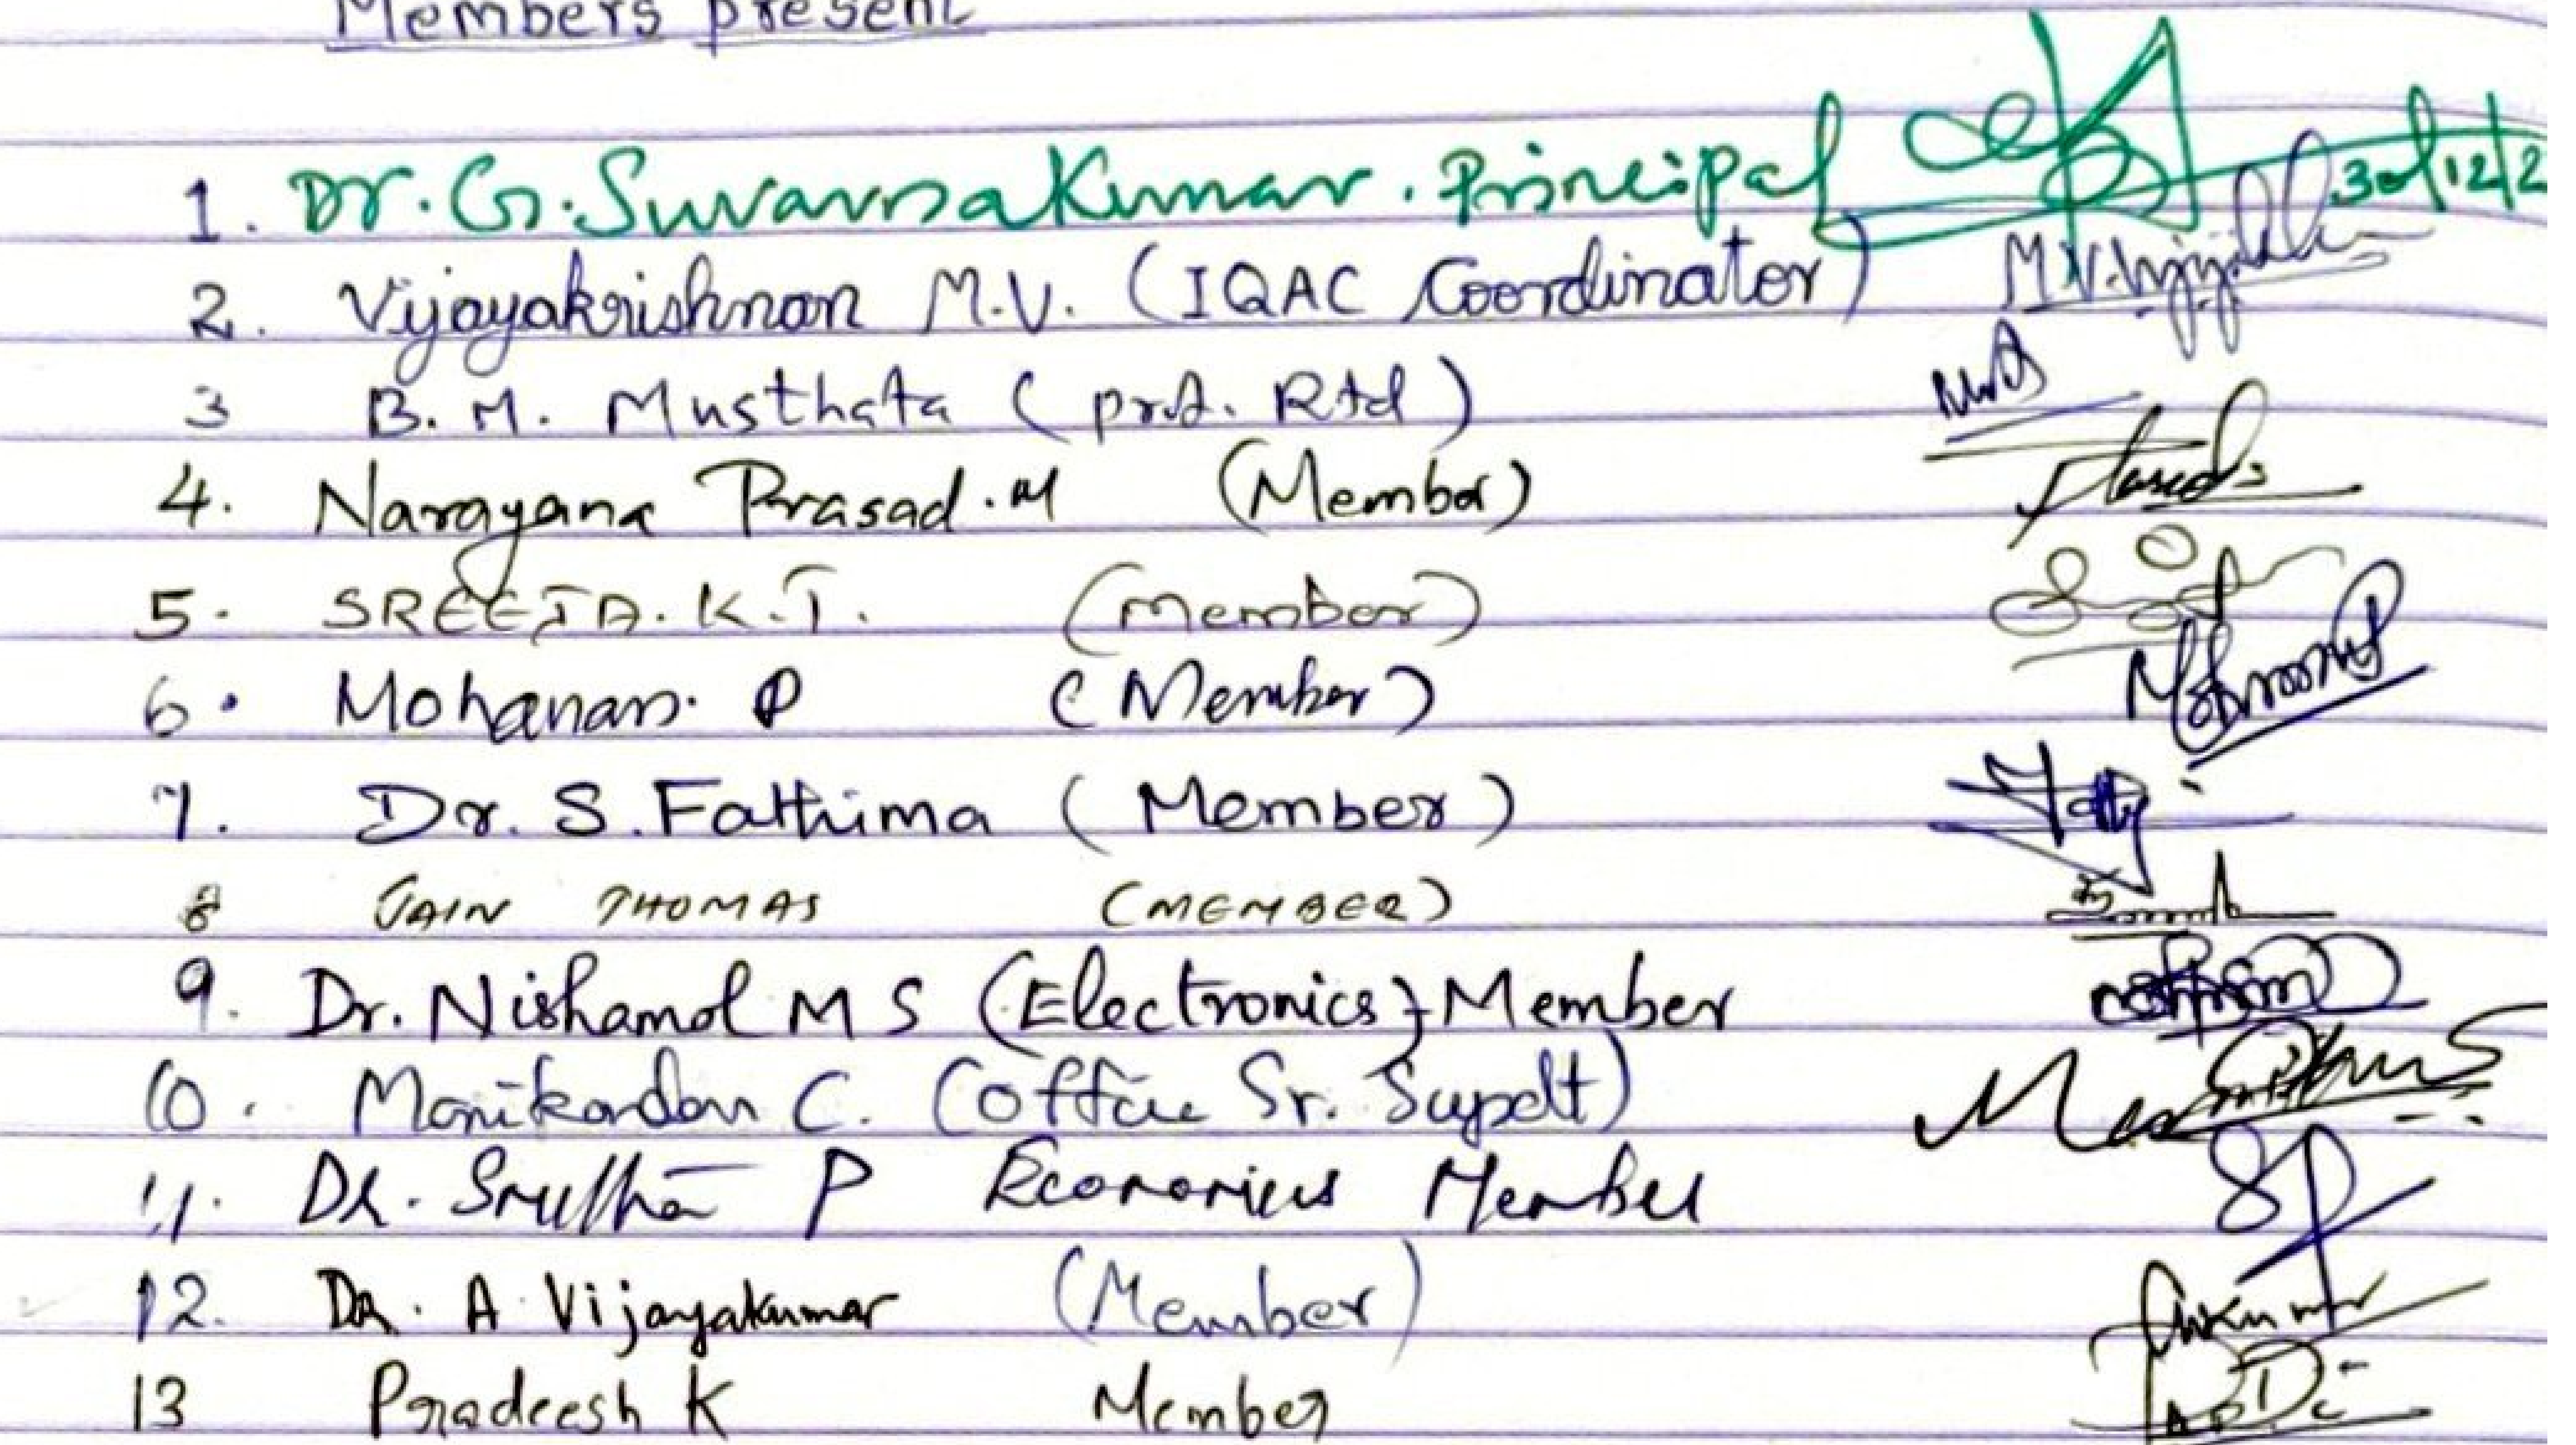 Members present
1. Dr. G. Suvarna Kumar. Principal 30/12/2
2. Vijayakrishnan M.V. (IQAC Coordinator) M.V.
3 B. M. Musthafa (prof. Rtd)
4. Narayana Prasad. M (Member)
5. SREEJA. K.T. (Member)
6. Mohanan. P (Member)
7. Dr. S. Fathima (Member)
8 JAIN THOMAS (MEMBER)
9. Dr. Nishamol M S (Electronics) Member
10. Manikandan C. (Office Sr. Supdt)
11. Dr. Srutha P Economics Member
12. Dr. A Vijayakumar (Member)
13 Pradeesh K Member